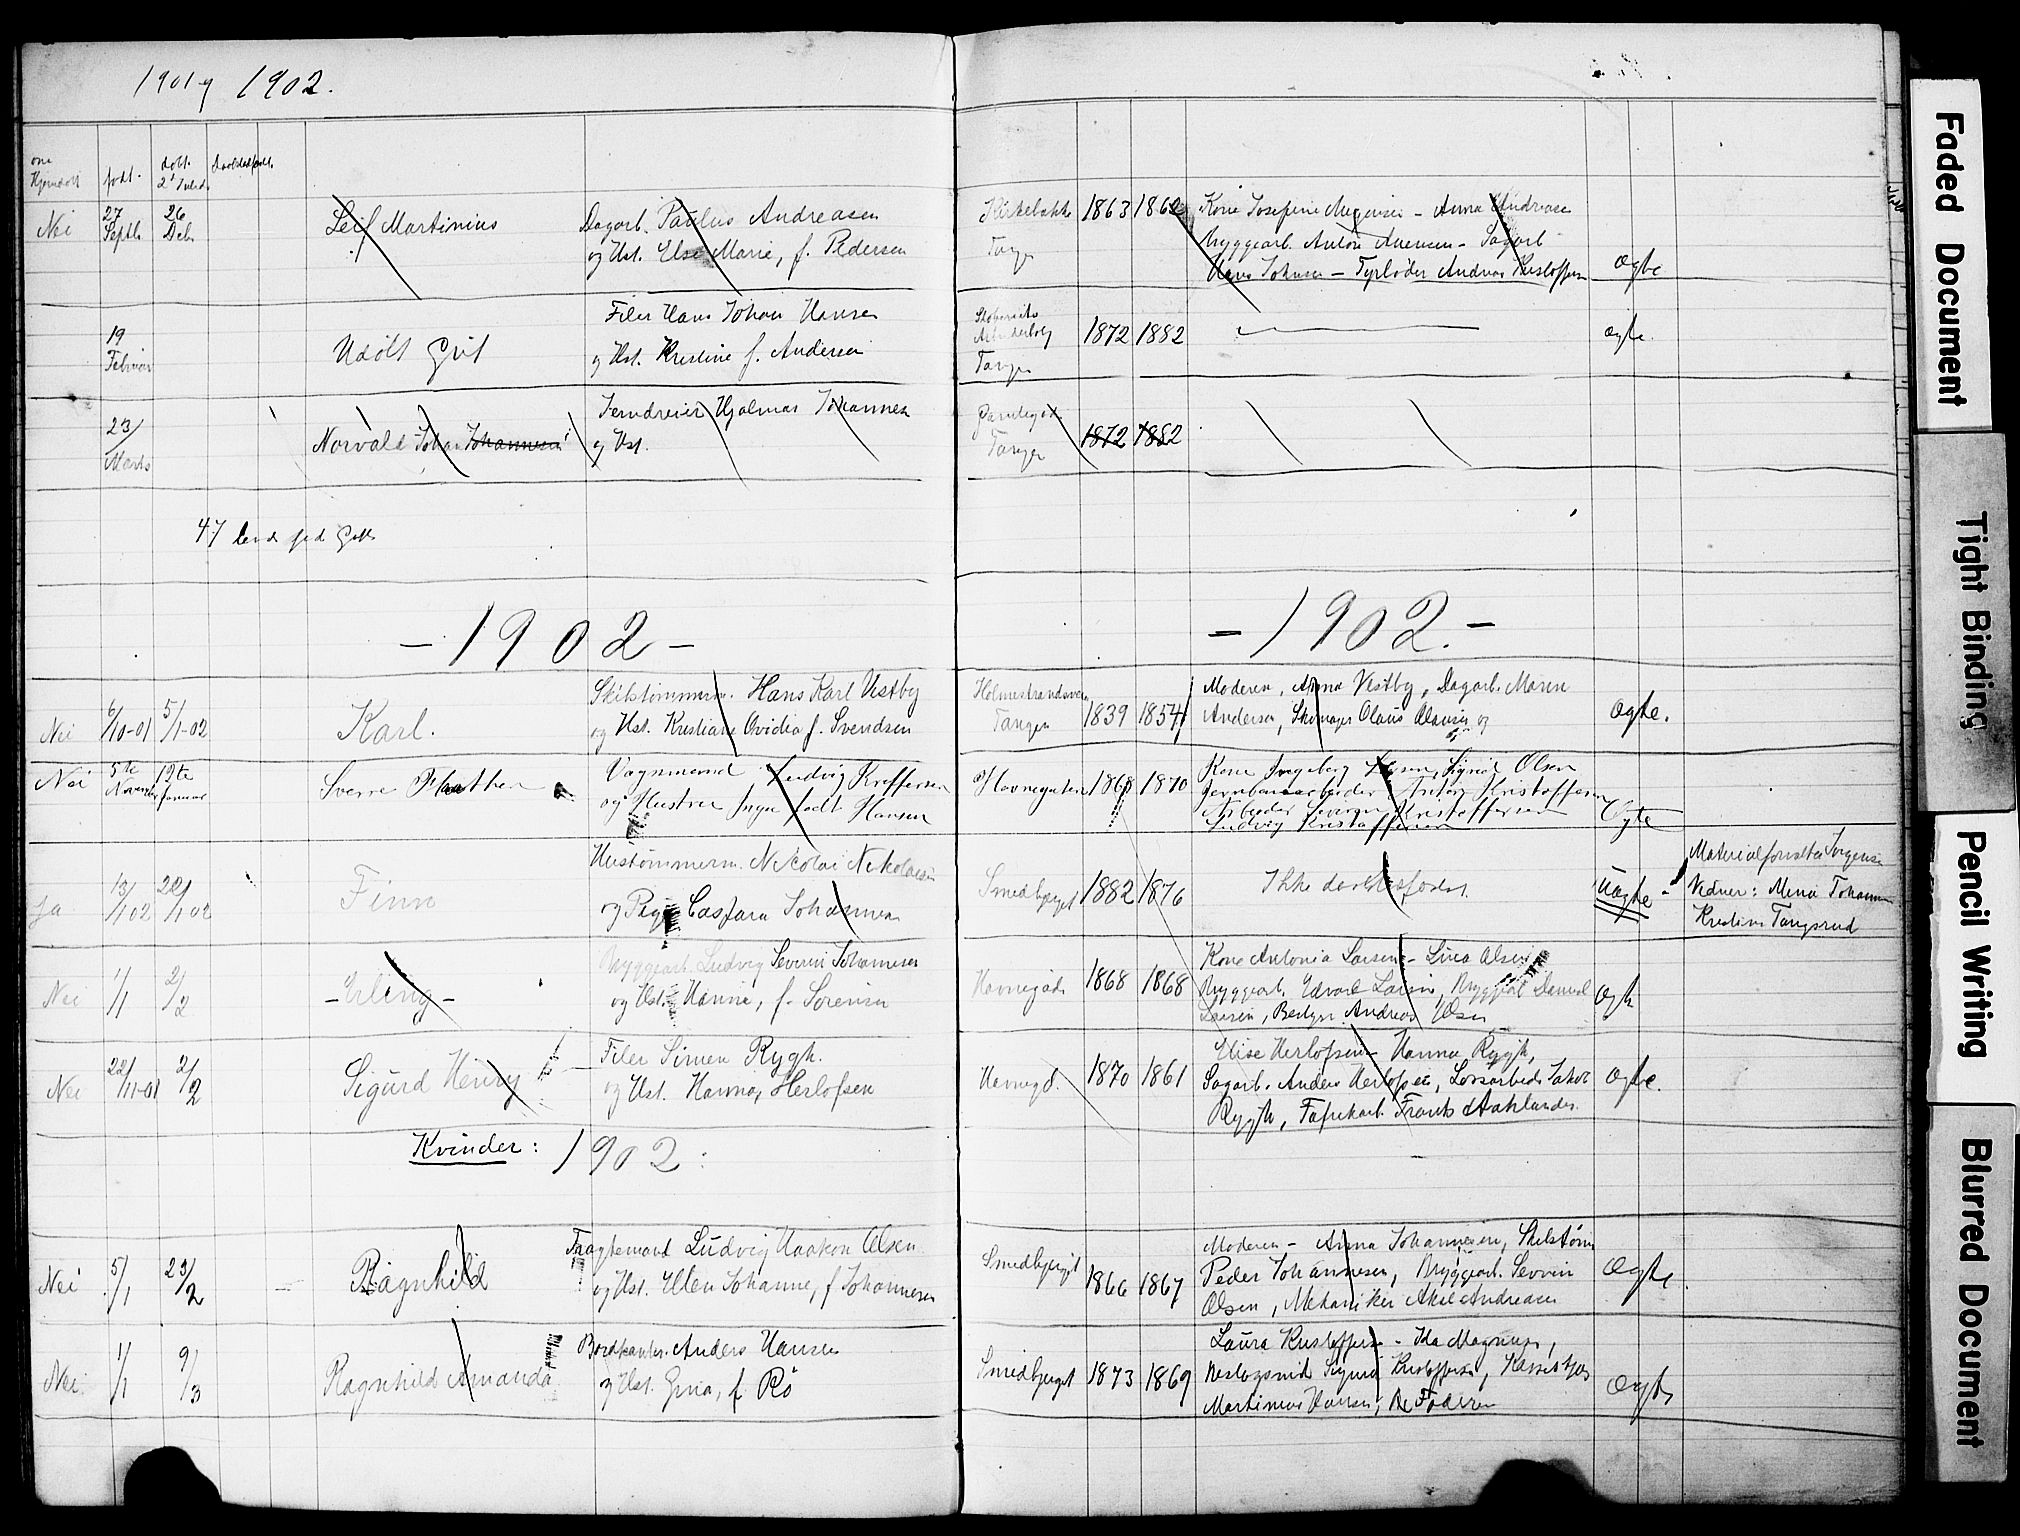 1901 og 1902.
om Hjemdøbt
født.
døbt.
Nei 27 Septb. 26 Deb. Leif Martinius Dagarb. Paulus Andreasen Kirkebakke 1863 1862
og Hst. Else Marie, f. Pedersen Tangen
Kone Josefine Mugensen - Anna Andreasen
Bryggearb. Anton - Sagarb.
Hans Johnsen - Fyrbøder Andreas Kristoffersen Ægte
19 Februar Udøbt Gut Filer Hans Johan Hansen Tangen 1872 1882 Ægte.
og Hst. Kristine f. Andersen
23/ Marts Norvald Johan Johannesen Jerndreier Hjalmar Johannesen Tangen 1872 1882
og Hst.
47
- 1902 - - 1902. -
Nei 6/10-01 5/1-02 Karl. Skibstømmerm. Hans Karl Vestby Holmestrandsveien Tangen 1839 1854
og Hst. Kristiane Ovidia f. Svendsen
Moderen, Anna Vestby, Dagarb. Maren
Andersen, Skomager Olaus Clausen og Ægte.
Nei 5te November 12te Januar Sverre Vognmand Ludvig Kristoffersen Havnegaten 1868 1870
og Hustru Inga født Hansen
Kone Ingeborg Olsen, Signe Olsen
Jernbanearbeider Anton Kristoffersen
Arbeider Severin Kristoffersen
Ludvig Kristoffersen Ægte
Ja 13/1 02 22/1 02 Finn Hustømmerm. Nikolai Nikolaisen Smedbjerget 1882 1876 Ikke daarligfødt. Uægte -
og Pige Caspara Johannesen
Materialforvalter Jørgensen
Vidner: Mina Johannesen
Kristine Tangerud
Nei 1/1 2/2 - Erling - Bryggearb. Ludvig Severin Johannesen Havnegade 1868 1868
og Hst. Hanna, f. Sørensen
Kone Antonia Larsen - Lina Olsen
Bryggearb. Edvard Larsen, Bryggearb Daniel
Larsen, Bestyrer Andreas Olsen Ægte
Nei 22/11-01 2/2 Sigurd Henry Filer Simen Rygh. Havnegd. 1870 1861
og Hst. Hanna, Herlofsen
Elise Herlofsen - Hanna Rygh,
Sagarb. Anders Herlofsen, Losarbeid. Jakob
Rygh, Fabrikarb. Frants Dahlander. Ægte.
Kvinder: 1902:
Nei 5/1 23/2 Ragnhild Fragtemand Ludvig Haakon Olsen. Smedbjerget 1866 1867
og Hst. Ellen Johanne, f Johannesen
Moderen - Anna Johannesen, Skibstøm
Peder Johannesen, Bryggearb. Severin
Olsen, Mekaniker Aksel Andreasen Ægte.
Nei. 1/1 9/3 Ragnhild Amanda Bordkanter. Anders Hansen Smedbjerget 1873 1869
og Hst. Gina, f. Rø
Laura Kristoffersen - Ida Magnusen,
Sigurd Kristoffersen,
Martinius Hansen, Faderen Ægte
Faded Document
Tight Binding
Pencil Writing
Blurred Document